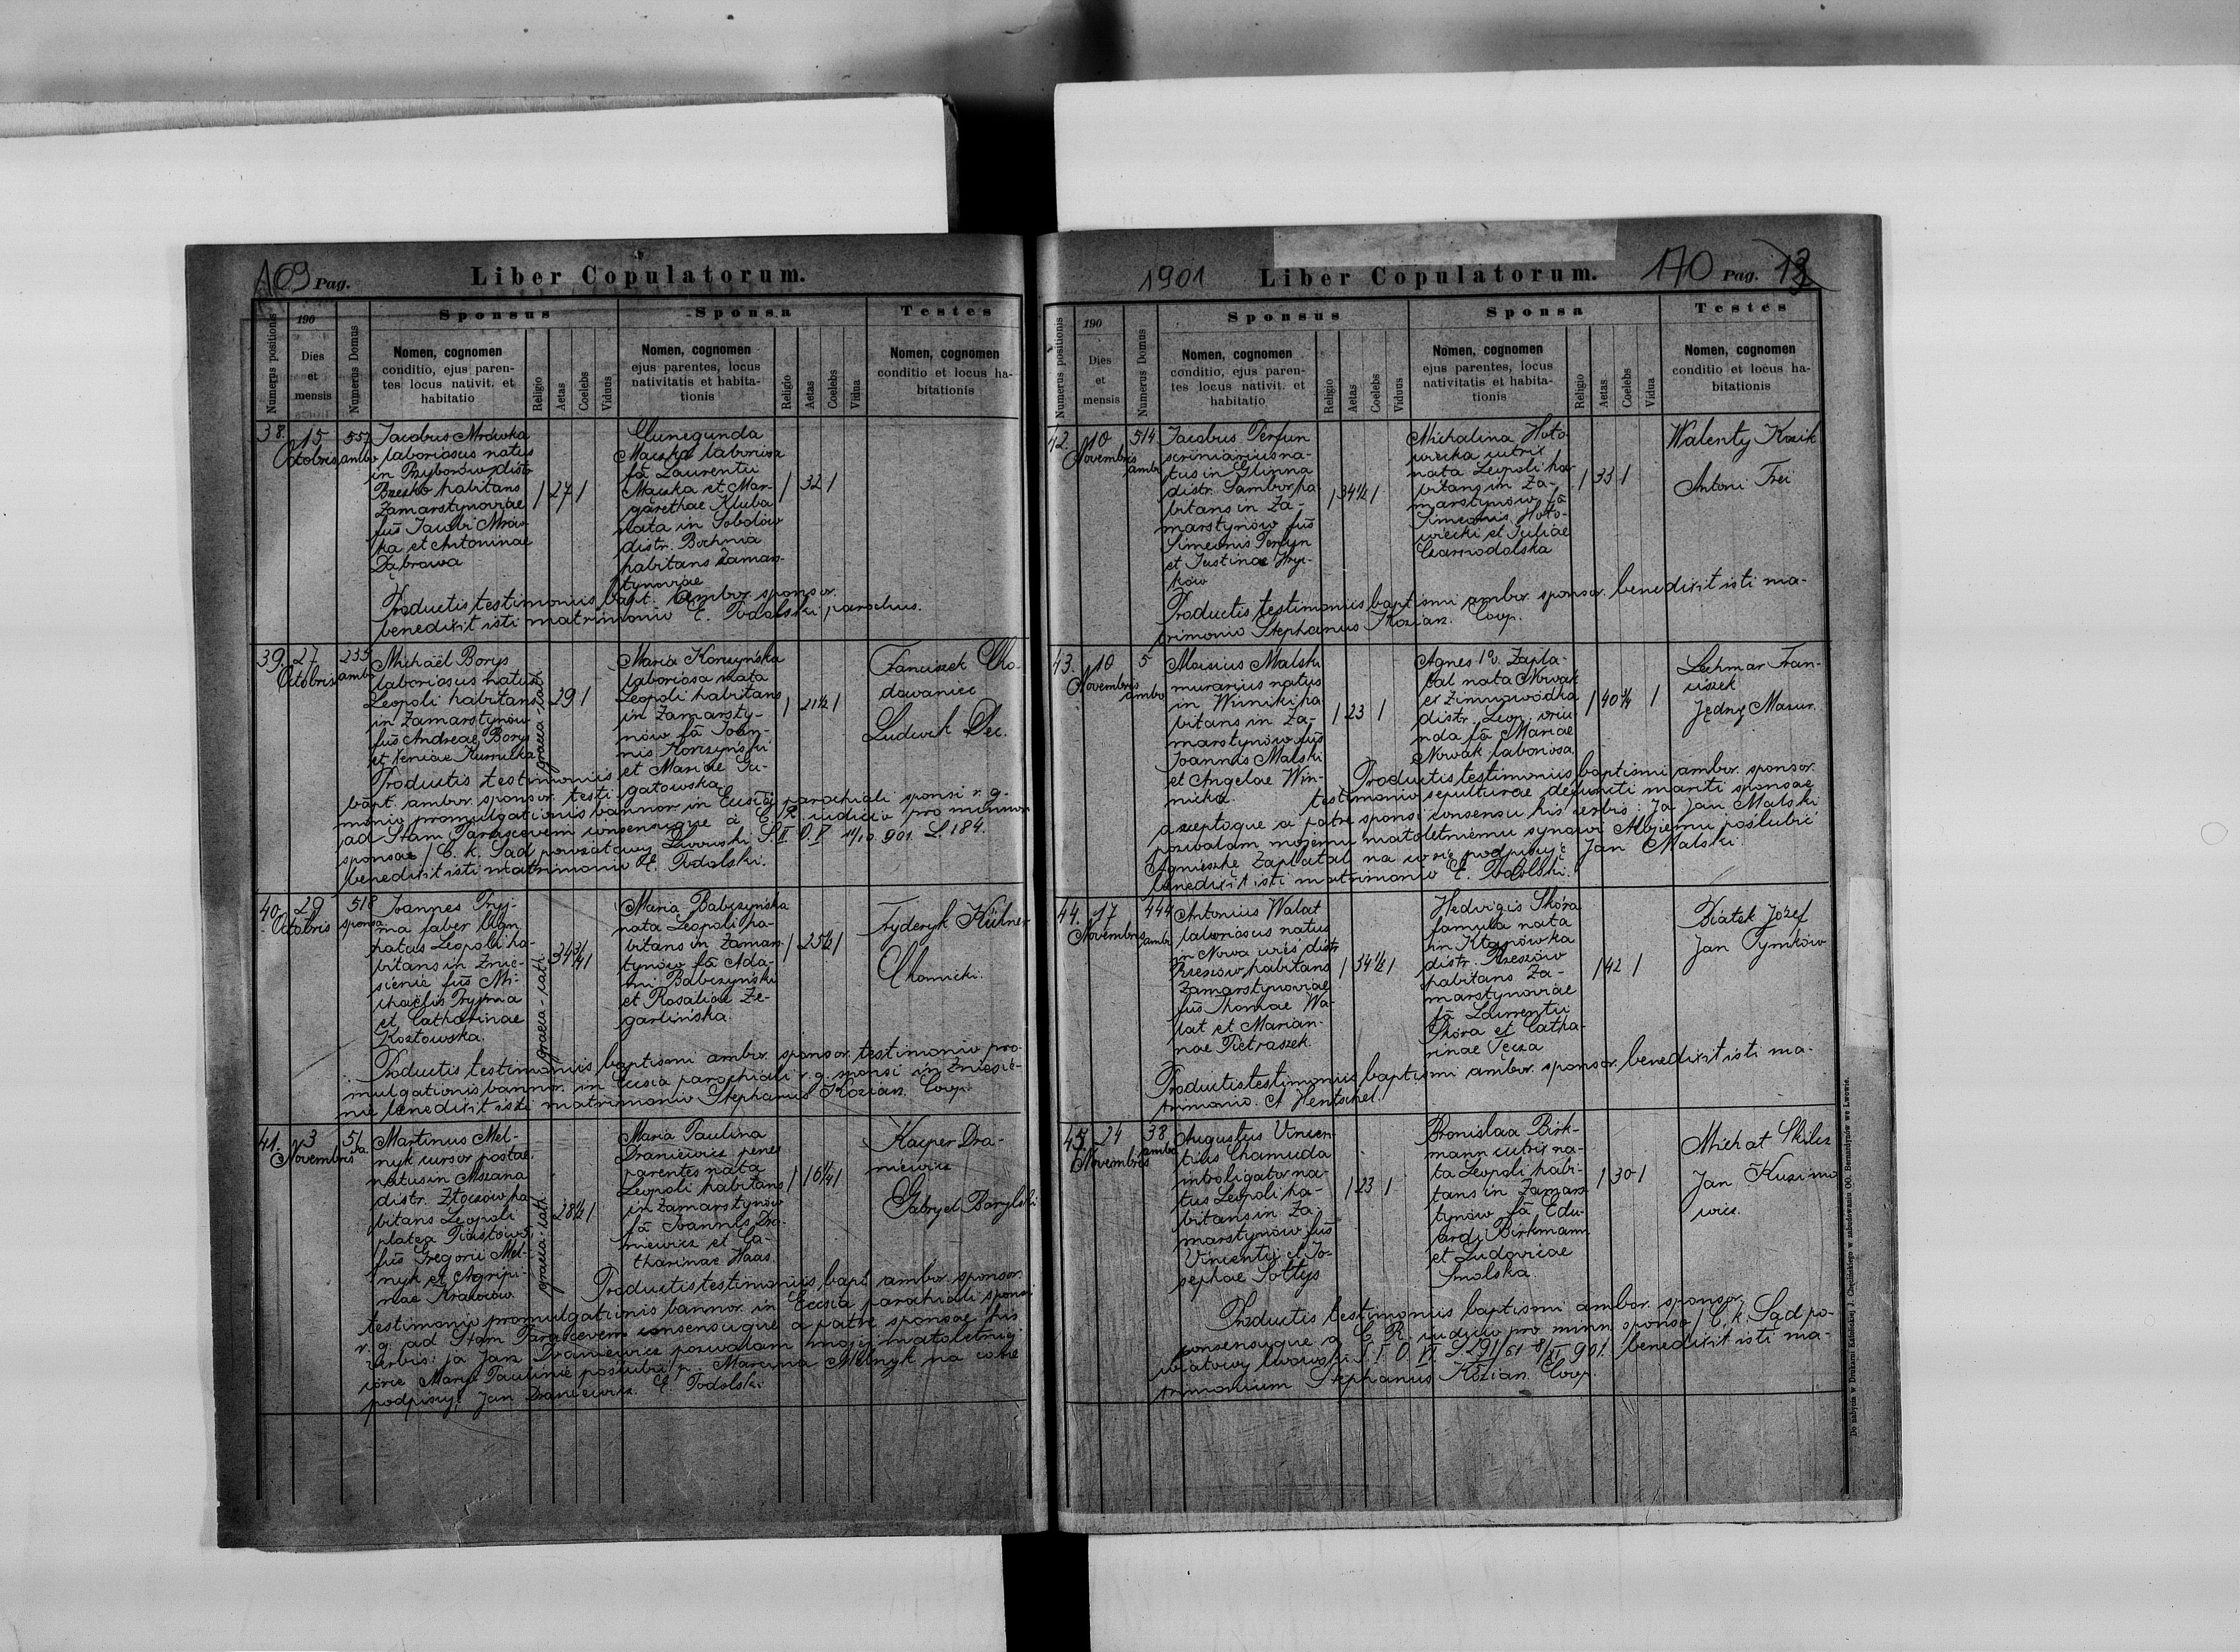 169 Pag.
Liber Copulatorum.
Numerus positionis
190
Dies
et
mensis
Numerus Domus
Sponsus
Nomen, cognomen
conditio, ejus paren-
tes locus nativit. et
habitatio
Religio
Aetas
Coelebs
Viduus
Sponsa
Nomen, cognomen
ejus parentes, locus
nativitatis et habita-
tionis
Religio
Aetas
Coelebs
Vidua
Testes
Nomen, cognomen
conditio et locus ha-
bitationis
38.
15
Octobris
557
ambo
Jacobus Mrówka
laboriosus natus
in Przyborów distr
Brzesko habitans
Zamarstynoviae
fus Jacobi Mrów
ka et Antoninae
Dąbrowa
27
Cunegunda
Macska laboriosa
fa Laurentii
Macska et Mar-
garethae Kluba
nata in Sobolów
distr. Bochnia
habitans Zamar-
tynoviae
32
Productis testimoniis bapt. ambor. sponsor.
benedixit isti matrimonio E. Podolski parochus.
39.
27
Octobris
235
ambo
Michaël Borys
laboriosus natus
Leopoli habitans
in Zamarstynów
fus Andreae Borys
et Xeniae Kumulka
graeco-cath.
29
Maria Korczyńska
laboriosa nata
Leopoli habitans
in Zamarsty-
nów fa Joan-
nis Korczyński
et Mariae Gu-
gatowska
21½
Franciszek Cho-
dawaniec
Ludwik Dec.
Productis testimoniis
bapt. ambor. sponsor. testi-
monio promulgationis bannor. in Eccsia parochiali sponsi r. g.
ad Stam Parascevem consensuque a C. R. iudicio pro minnor
sponsae / C. k. Sąd powiatowy Lwowski S. II O. V 11/10 901. L 184.
benedixit isti matrimonio E. Podolski.
40.
29
Octobris
518
sponsa
Joannes Pryj-
ma faber lign.
natus Leopoli ha-
bitans in Znie-
sienie fus Mi-
chaëlis Pryjma
et Catharinae
Kozłowska.
graeco-cath.
34¾
Maria Babczyńska
nata Leopoli ha-
bitans in Zamar-
tynów fa Ada-
mi Babczyński
et Rosaliae Ze-
garlińska.
25½
Fryderyk Kübner
Chomicki.
Productis testimoniis baptismi ambor. sponsor. testimonio pro-
mulgationis bannor. in Eccsia parochiali r. g. sponsi in Zniesie-
nie benedixit isti matrimonio Stephanus Kozian. Coop.
41.
3
Novembris
51a
Martinus Mel-
nyk cursor postae.
natus in Mszana
distr. Złoczów ha
bitans Leopoli
platea Piastów 5
fus Gregorii Mel-
nyk et Agripi-
nae Krawców
graeco-cath.
28½
Maria Paulina
Draniewicz penes
parentes nata
Leopoli habitans
in Zamarstynów
fa Joannis Dra-
niewicz et Ca-
tharinae Haas.
16¼
Kacper Dra-
niewicz
Gabryel Barylski
Productis testimoniis bapt. ambor. sponsor.
testimonio promulgationis bannor. in Eccsia parochiali sponsi
r. g. ad Stam Parascevem consensuque a patre sponsae his
verbis: ja Jan Draniewicz pozwalam mojej małoletniej
córce Maryi Paulinie poślubić p. Marcina Melnyk na co się
podpisuję Jan Draniewicz. E. Podolski
1901
Liber Copulatorum.
170 Pag. 13
Numerus positionis
190
Dies
et
mensis
Numerus Domus
Sponsus
Nomen, cognomen
conditio, ejus paren-
tes locus nativit. et
habitatio
Religio
Aetas
Coelebs
Viduus
Sponsa
Nomen, cognomen
ejus parentes, locus
nativitatis et habita-
tionis
Religio
Aetas
Coelebs
Vidua
Testes
Nomen, cognomen
conditio et locus ha-
bitationis
42.
10
Novembris
514
ambo
Jacobus Perfun
scriniarius na-
tus in Glinna
distr. Sambor ha
bitans in Za-
marstynów fus
Simeonis Perfun
et Justinae Hryc-
ków
34½
Michalina Hoło
wiecka cutrix
nata Leopoli ha-
bitans in Za-
marstynów fa
Simeonis Hoło-
wiecki et Juliae
Czarnodolska
33
Walenty Kozik
Antoni Frei
Productis testimoniis baptismi ambor. sponsor. benedixit isti ma-
trimonio Stephanus Kozian. Coop.
43.
10
Novembris
5
ambo
Aloisius Malski
murarius natus
in Winniki ha
bitans in Za-
marstynów fus
Joannis Malski
et Angelae Win-
nicka.
23
Agnes 1º v. Zapła-
tal nata Nowak
ex Zimnowódka
distr. Leop. oriu-
nda fa Mariae
Nowak laboriosa
40¾
Lachmar Fran-
ciszek
Jędrzej Mazur.
Productis testimoniis baptismi ambor. sponsor.
testimonio sepulturae defuncti mariti sponsae
acceptoque a patre sponsi consensu his verbis: Ja Jan Malski
pozwalam mojemu małoletniemu synowi Alojzemu poślubić
Agnieszkę Zapłatal na co się podpisuję Jan Malski.
benedixit isti matrimonio E. Podolski.
44.
17
Novembris
444
ambo
Antonius Walat
laboriosus natus
in Nowa wieś distr
Rzeszów habitans
Zamarstynoviae
fus Thomae Wa-
lat et Marian-
nae Pietraszek.
34½
Hedvigis Skóra
famula nata
in Kłapówka
distr. Rzeszów
habitans Za-
marstynoviae
fa Laurentii
Skóra et Catha-
rinae Tęcza
42
Piątek Józef
Jan Tymków
Productis testimoniis baptismi ambor. sponsor. benedixit isti ma-
trimonio. A Hentschel.
45.
24
Novembris
38
ambo
Augustus Vincen-
tius Chamuda
intoligator na-
tus Leopoli ha-
bitans in Za-
marstynów fus
Vincentii et Jo-
sephae Sołtys
23
Bronislaa Birk-
mann cutrix na-
ta Leopoli habi-
tans in Zamars
tynów fa Edu-
ardi Birkmann
et Ludovicae
Smolska.
30
Michał Skilcz
Jan Kuzimo
wicz.
Productis testimoniis baptismi ambor. sponsor.
consensuque a C. R. iudicio pro minn. sponso / C. k. Sąd po-
wiatowy lwowski S. I O VI. L 291/61 8/XI 901. benedixit isti ma-
trimonium Stephanus Kozian. Coop.
Do nabycia w Drukarni Katolickiej J. Chęcińskiego w zabudowaniu OO. Bernardynów we Lwowie.